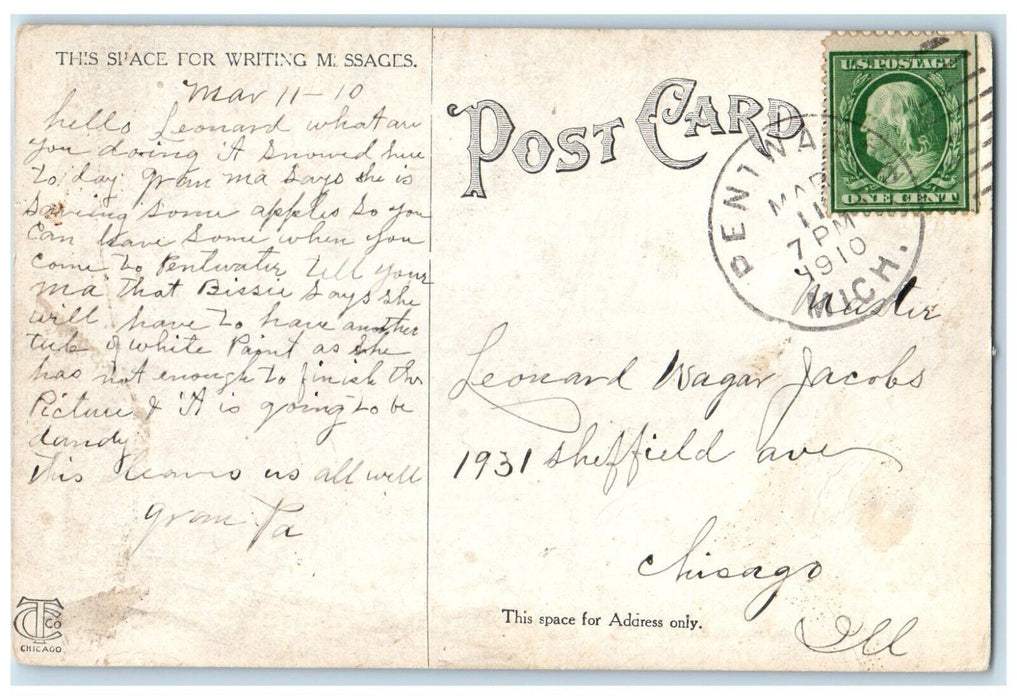 THIS SPACE FOR WRITING MESSAGES.
Mar 11-10
hello Leonard what are
you doing it snowed here
to day gran ma says she is
saving some apples so you
can have some when you
come to Pentwater tell your
ma that Bissie says she
will have to have another
tube of white Paint as she
has not enough to finish the
Picture & it is going to be
dandy
This leaves us all well
gran Pa
TC Co
CHICAGO
POST CARD
U.S. POSTAGE
ONE CENT
PENTWA
MAR
11
7 PM
1910
MICH.
Master
Leonard Wagar Jacobs
1931 sheffield ave
Chicago
Ill
This space for Address only.